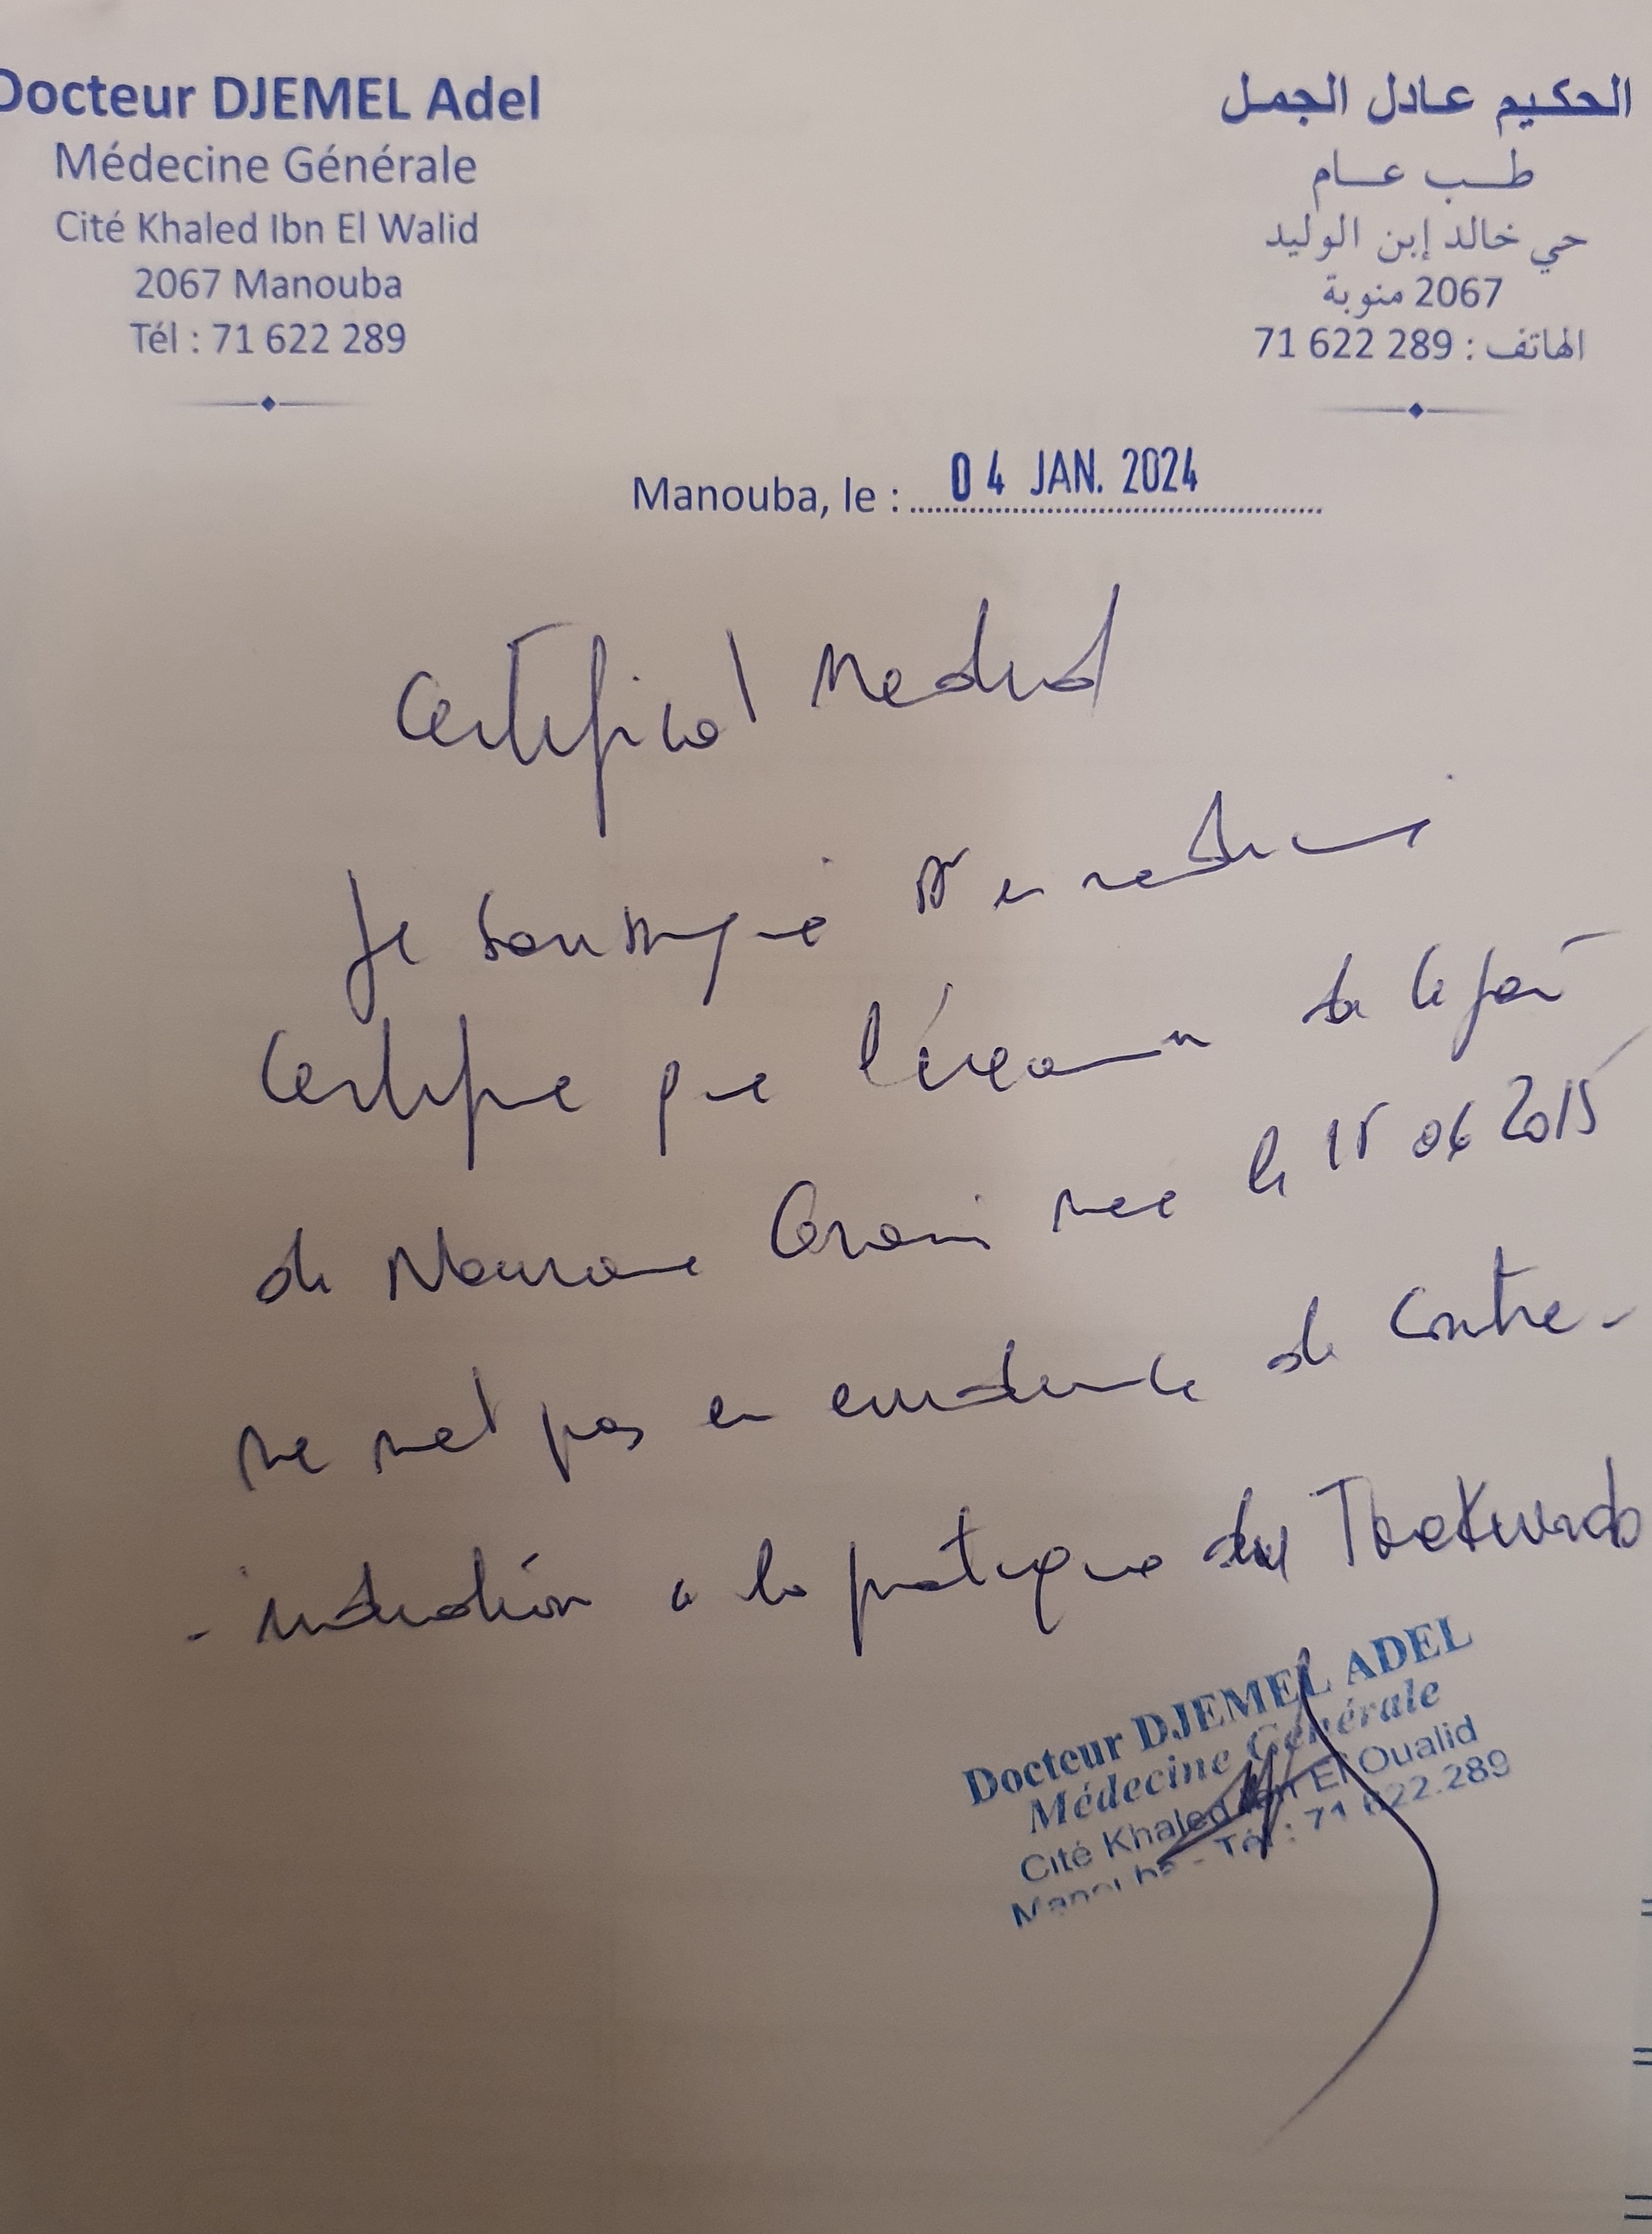 Docteur DJEMEL Adel
Médecine Générale
Cité Khaled Ibn El Walid
2067 Manouba
Tél : 71 622 289
الحكيم عادل الجمل
طب عام
حي خالد إبن الوليد
2067 منوبة
الهاتف : 71 622 289
Manouba, le : 04 JAN. 2024
Certificat Medical
Je soussigné Dr en medecine
Certifie que l'examen de ce jour
de Nourane née le 15 06 2015
ne met pas en evidence de contre-
- indication a la pratique du Taekwondo
Docteur DJEMEL ADEL
Médecine Générale
Cité Khaled Ibn El Oualid
Manouba - Tél : 71 622.289